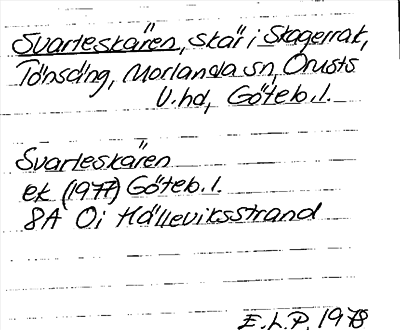 Svarteskären, skär i Skagerrak,
Tånsäng, Morlanda sn, Orusts
V. hd, Göteb. l.
Svarteskären
ek (1977) Göteb. l.
8A 0i Hälleviksstrand
E.L.P. 1978